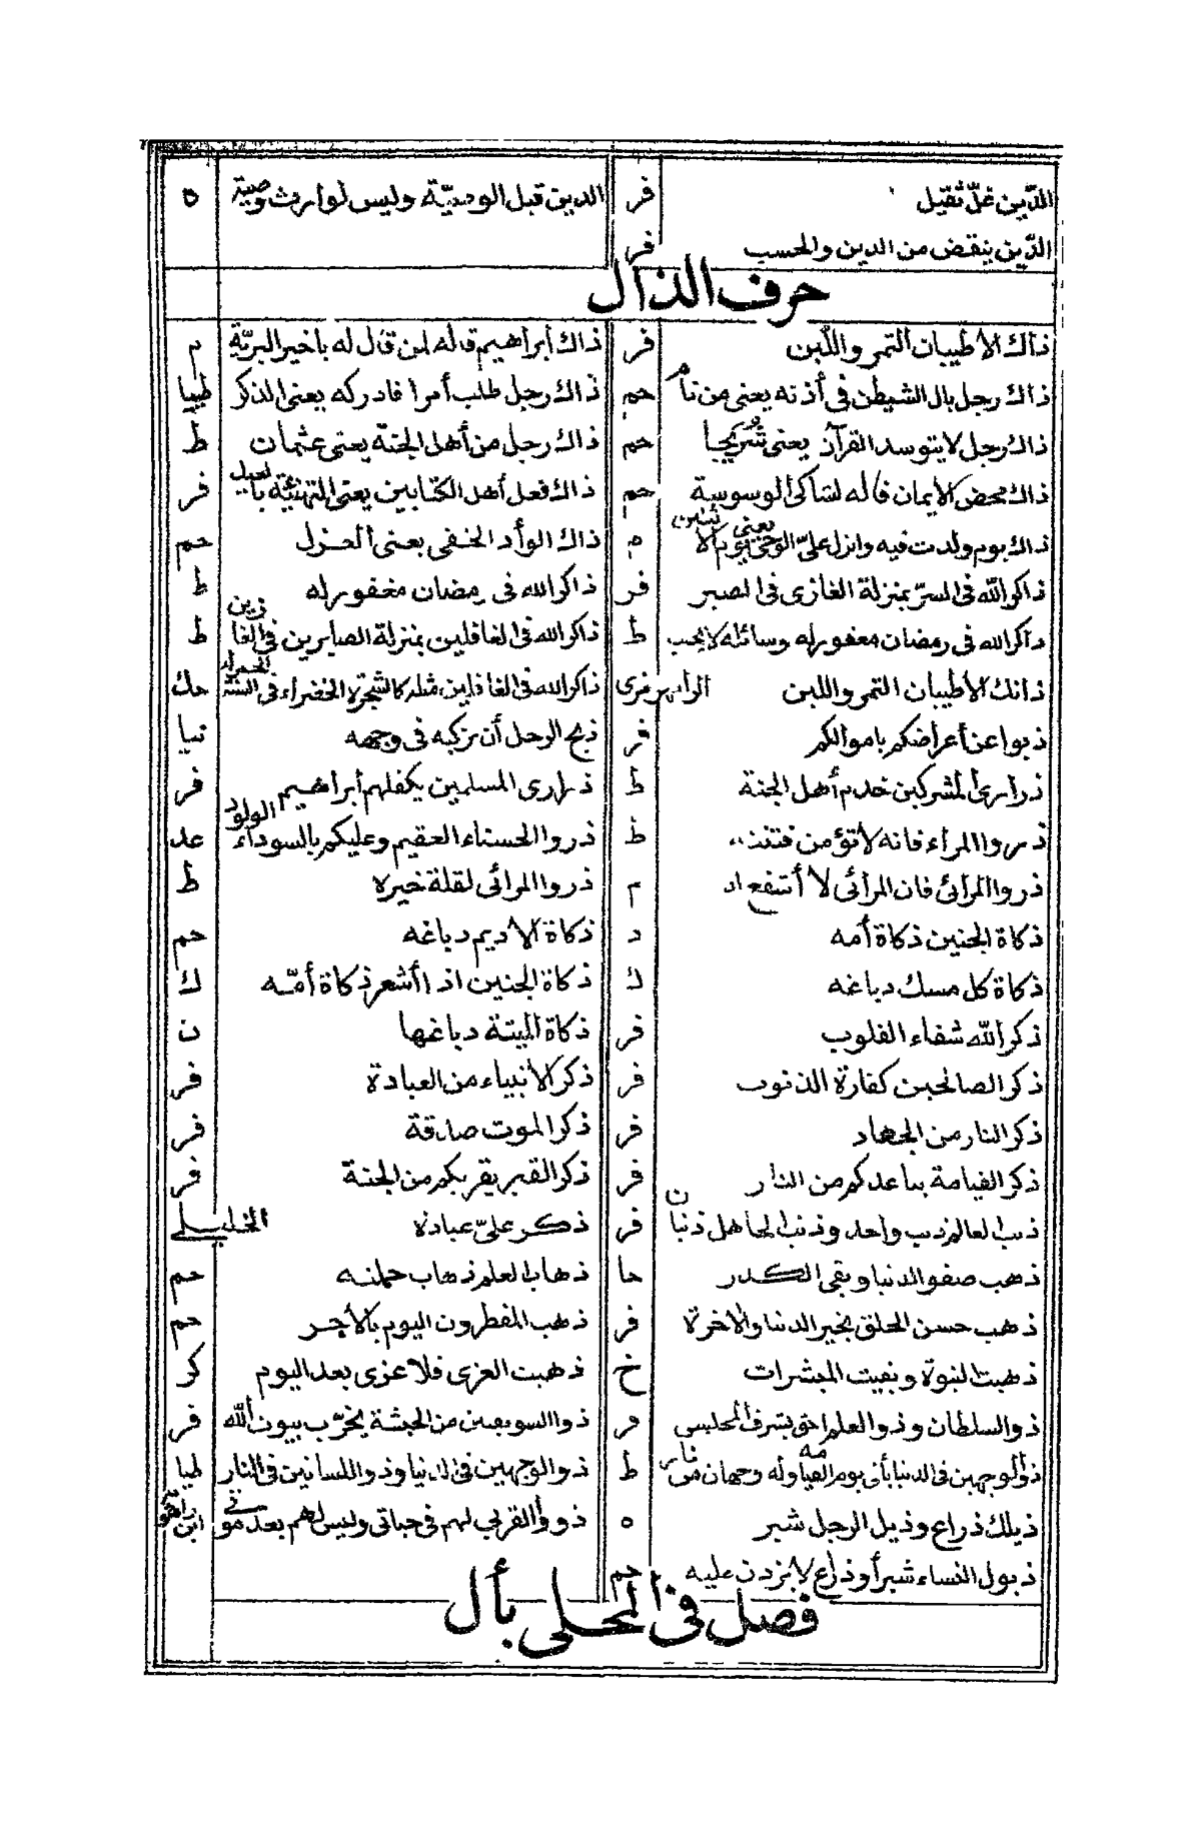 الدّين غلّ ثقيل فر الدين قبل الوصيّة وليس لوارث وصية ه
الدّين ينقض من الدين والحسب فر
حرف الذال
ذاك الاطيبان التمر واللبن فر ذاك أبراهيم قاله لمن قال له ياخير البريّة م
ذاك رجل بال الشيطن فى أذنه يعنى من نام حم ذاك رجل طلب أمرا فادركه يعنى الذكر طيبا
ذاك رجل لا يتوسد القرآن يعنى شريحا حم ذاك رجل من أهل الجنة يعنى عثمان ط
ذاك محض الايمان قاله لشاكى الوسوسة حم ذاك فعل أهل الكتابين يعنى التهنئة بالعيد فر
ذاك يوم ولدت فيه وانزل علىّ الوحى يعنى يوم الاثنين م ذاك الوأد الخفى يعنى العزل حم
ذاكر الله فى السرّ بمنزلة الغازى فى الصبر فر ذاكر الله فى رمضان مغفور له ط
ذاكر الله فى رمضان مغفور له وسائله لا يخب ط ذاكر الله فى الغافلين بمنزلة الصابرين فى الغازين ط
ذانك الاطيبان التمر واللبن الرامهرمزى ذاكر الله فى الغافلين مثله كالشجرة الخضراء فى حك
ذبوا عن أعراضكم باموالكم فر ذبح الرجل أن تزكيه فى وجهه نيا
ذرارى المشركين خدم أهل الجنة ط ذرارى المسلمين يكفلهم أبراهيم فر
ذروا المراء فانه لا تؤمن فتنته ط ذروا الحسناء العقيم وعليكم بالسوداء الولود عد
ذروا المرائى فان المرائى لا أشفع له م ذروا المرائى لقلة خيره ط
ذكاة الجنين ذكاة أمه د ذكاة الاديم دباغه حم
ذكاة كل مسك دباغه ك ذكاة الجنين اذا أشعر ذكاة أمّه ك
ذكر الله شفاء القلوب فر ذكاة الميتة دباغها ن
ذكر الصالحين كفارة الذنوب فر ذكر الأنبياء من العبادة فر
ذكر النار من الجهاد فر ذكر الموت صدقة فر
ذكر القيامة يباعدكم من النار فر ذكر القبر يقربكم من الجنة فر
ذنب العالم ذنب واحد وذنب الجاهل ذنبان فر ذكر علىّ عبادة الخليلى
ذهب صفو الدنيا وبقى الكدر حا ذهاب العلم ذهاب حملته حم
ذهب حسن الخلق بخير الدنيا والاخرة فر ذهب المفطرون اليوم بالأجر حم
ذهبت النبوة وبقيت المبشرات خ ذهبت العزى فلا عزى بعد اليوم كر
ذو السلطان وذو العلم احق بشرف المجلس فر ذو السويقتين من الحبشة يخرّب بيوت الله فر
ذو الوجهين فى الدنيا يأتى يوم القيامة وله وجهان من نار ط ذو الوجهين فى الدنيا وذو اللسانين فى النار طيا
ذيلك ذراع وذيل الرجل شبر ه ذوو القربى لهم فى حياتى وليس لهم بعد موتى ابن راهويه
ذيول النساء شبر أو ذراع لا يزدن عليه حم
فصل فى المحلى بأل